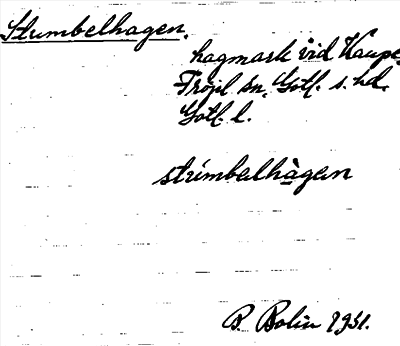 Strumbelhagen.
hagmark vid Kaupe,
Fröjel sn, Gotl. s. hd,
Gotl. l.
strúmbalhàgan
B. Bolin 1931.